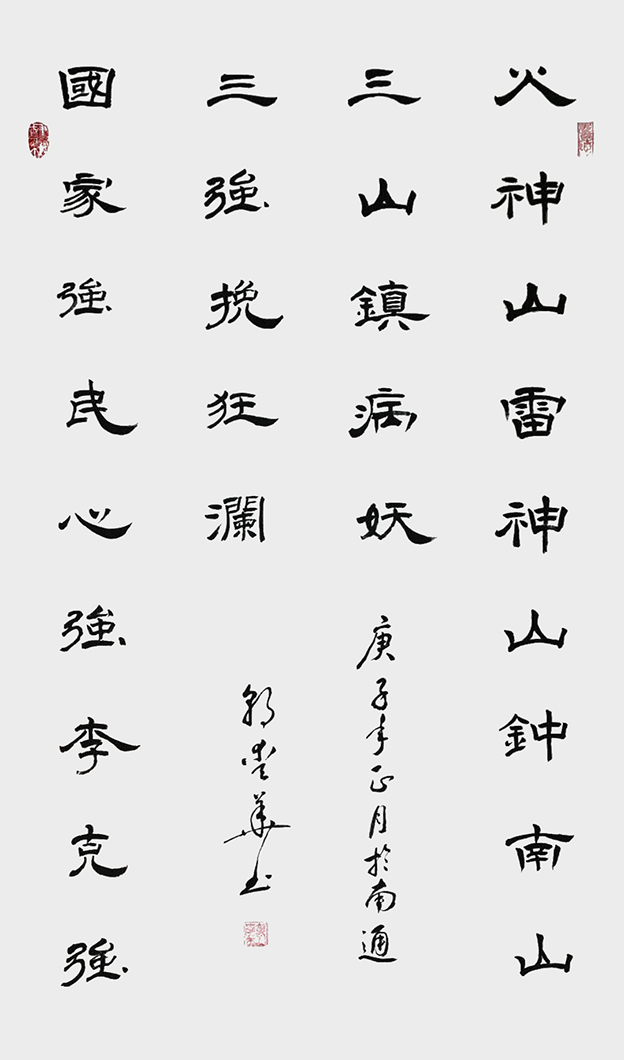 火神山雷神山鈡南山
三山鎮病妖
三強挽狂瀾
國家強民心強李克強
庚子年正月於南通
華书